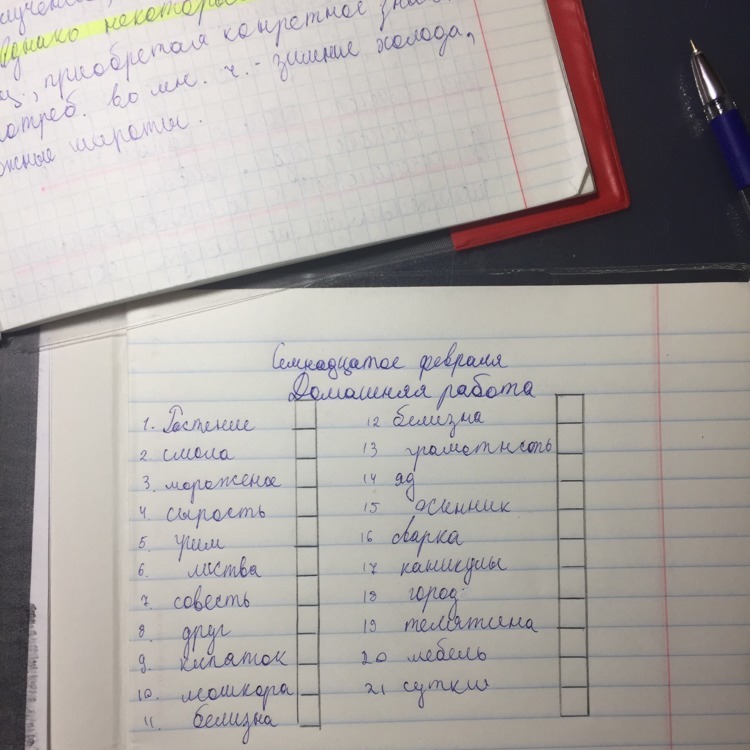 однако некоторы
приобретая конкретное
во мн. ч. - зимние холода,
Семнадцатое февраля
Домашняя работа
1. Растение
2. смола
3. мороженое
4. сырость
5. грим
6. листва
7. совесть
8. друг
9. кипяток
10. мошкора
11. белизна
12 белизна
13 грамотность
14 яд
15 осинник
16 варка
17 каникулы
18 город
19 телятина
20 мебель
21 сутки